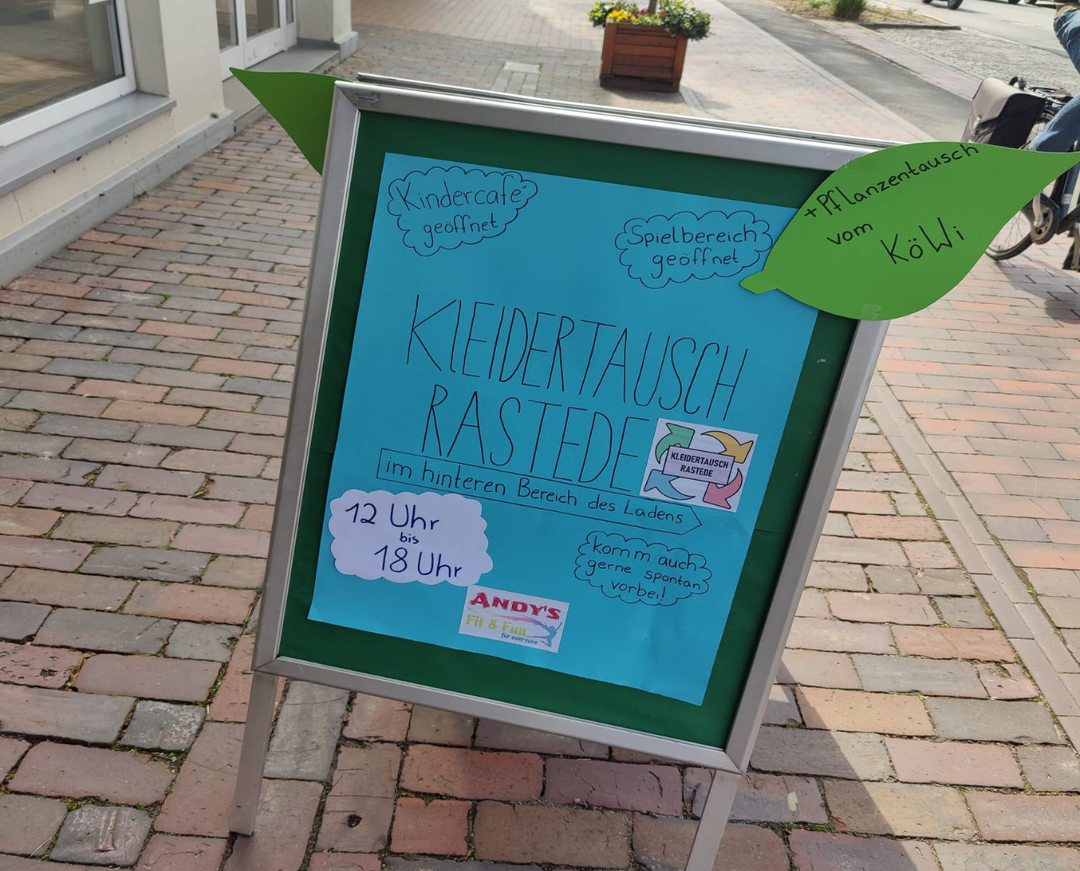 Kindercafé
geöffnet
Spielbereich
geöffnet
+Pflanzentausch
vom
KöWi
KLEIDERTAUSCH
RASTEDE
KLEIDERTAUSCH
RASTEDE
im hinteren Bereich des Ladens
12 Uhr
bis
18 Uhr
komm auch
gerne spontan
vorbei!
ANDY'S
Fit & Fun
für everyone